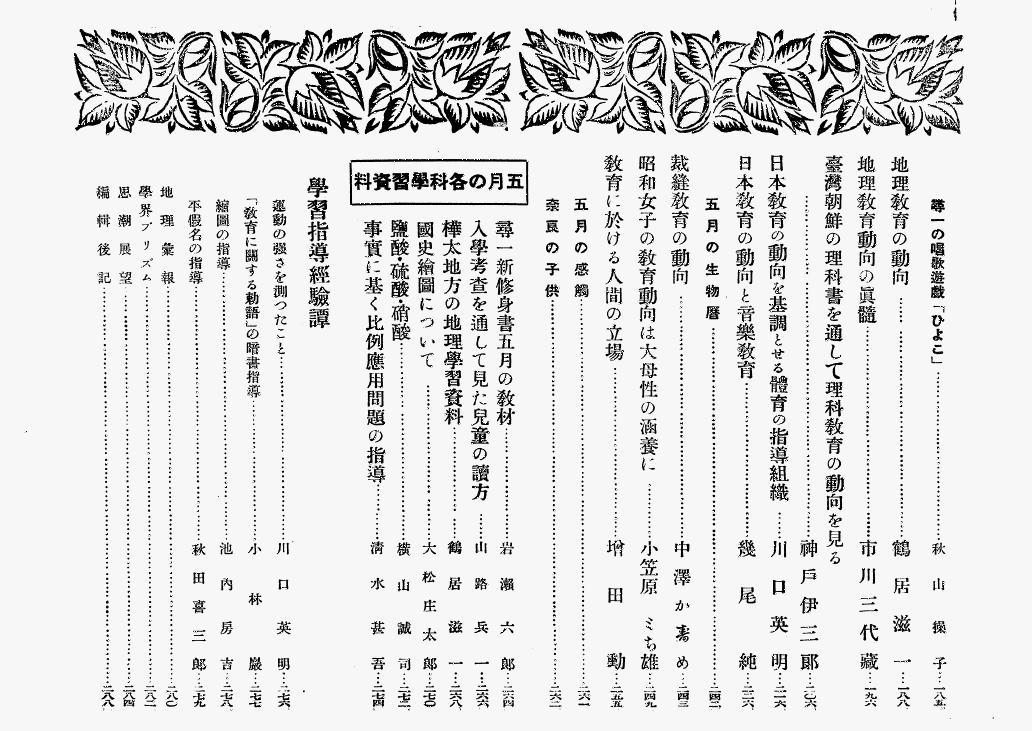 尋一の唱歌遊戲「ひよこ」…秋山操子…一八五
地理敎育の動向…鶴居滋一…一八八
地理敎育動向の眞髓…市川三代藏…一九六
臺灣朝鮮の理科書を通して理科敎育の動向を見る
…神戶伊三郎…二〇六
日本敎育の動向を基調とせる體育の指導組織…川口英明…二一六
日本敎育の動向と音樂敎育…幾尾純…二三六
五月の生物曆…二四二
裁縫敎育の動向…中澤か壽め…二四三
昭和女子の敎育動向は大母性の涵養に…小笠原ミち雄…二四九
敎育に於ける人間の立場…增田動…二五五
五月の感觸…二六一
奈良の子供…二六二
五月の各科學習資料
尋一新修身書五月の敎材…岩瀨六郎…二六四
入學考査を通して見た兒童の讀方…山路兵一…二六六
樺太地方の地理學習資料…鶴居滋一…二六八
國史繪圖について…大松庄太郎…二七〇
鹽酸・硫酸・硝酸…橫山誠司…二七二
事實に基く比例應用問題の指導…淸水甚吾…二七四
學習指導經驗譚
運動の强さを測つたこと…川口英明…二七六
「敎育に關する勅語」の暗書指導…小林巖…二七七
繪圖の指導…池內房吉…二七八
平假名の指導…秋田喜三郎…二七九
地理彙報…二八〇
學界プリズム…二八二
思潮展望…二八四
編輯後記…二八八